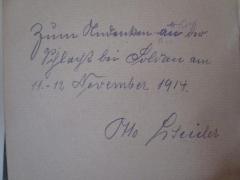 Zum Andenken an die
Schlacht bei Soldau am
11.-12 November 1914.
Otto